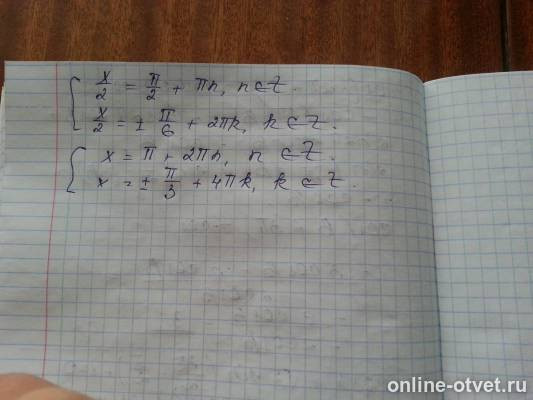 x/2 = π/2 + πn, n ∈ Z.
x/2 = ± π/6 + 2πk, k ∈ Z.
x = π + 2πn, n ∈ Z.
x = ± π/3 + 4πk, k ∈ Z.
online-otvet.ru